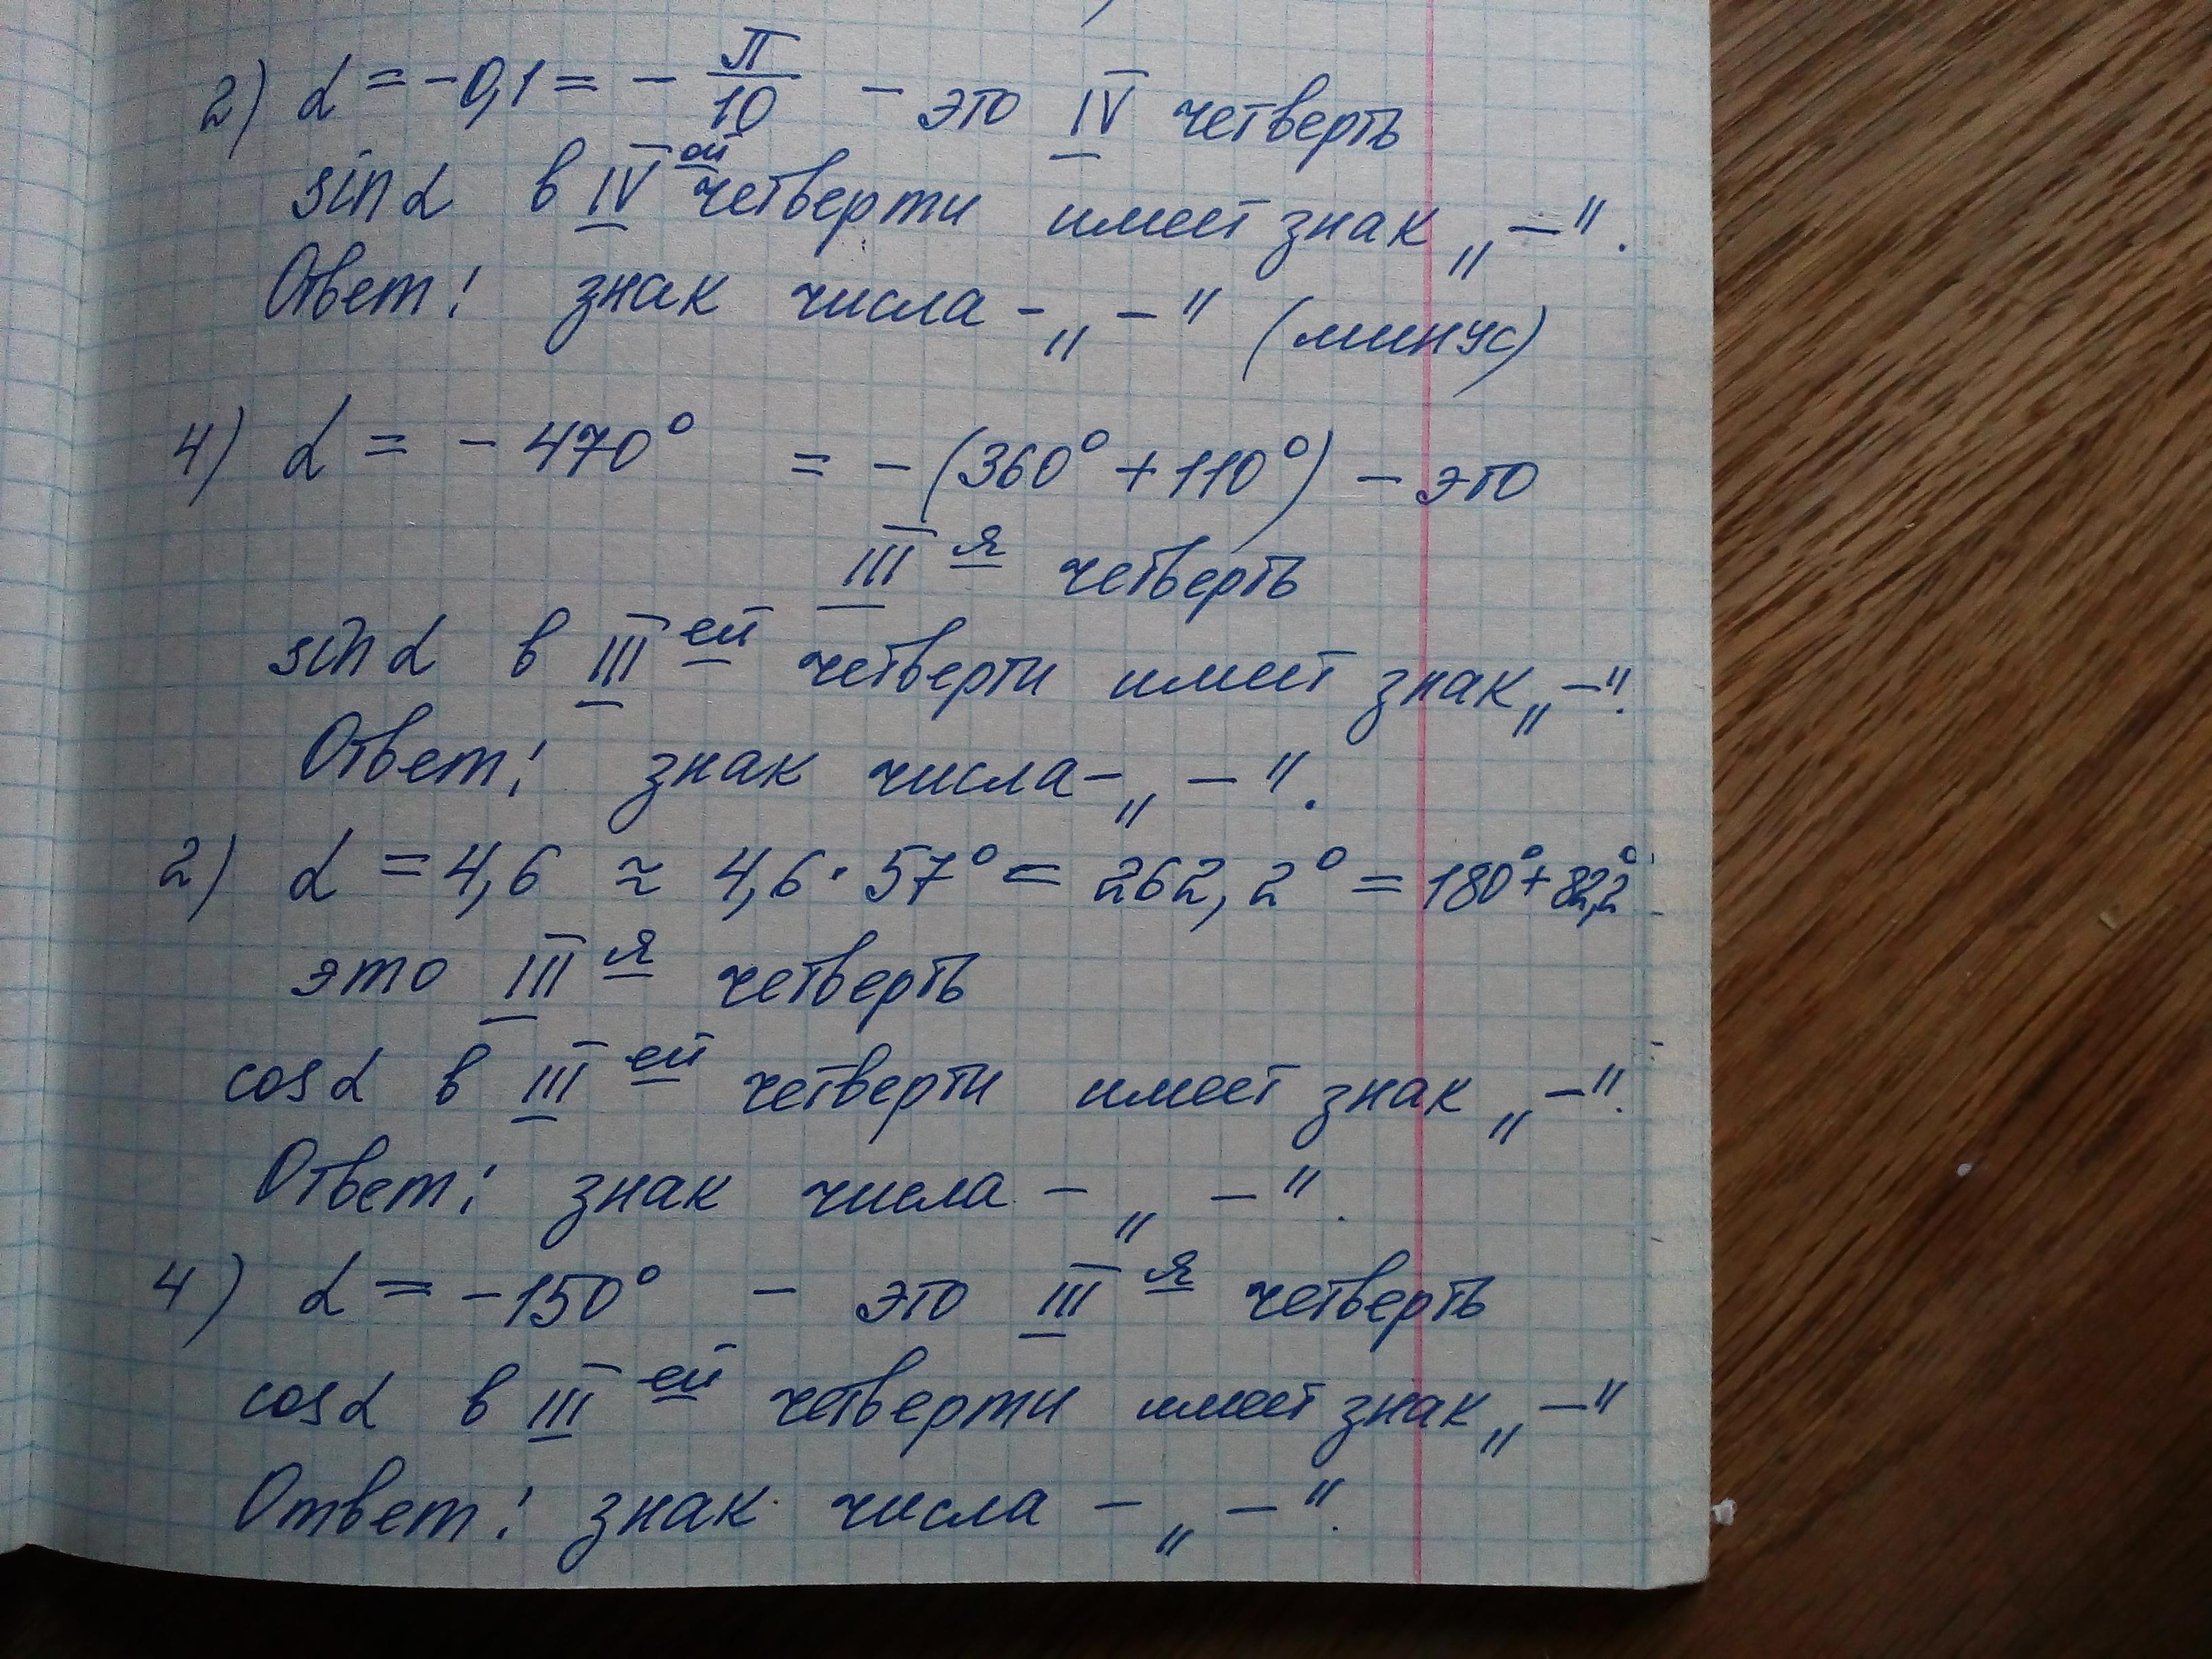 2) α = -0,1 = - π/10 - это IV четверть
sin α в IV ой четверти имеет знак „-“.
Ответ: знак числа - „-“ (минус)
4) α = - 470° = - (360° + 110°) - это
III я четверть
sin α в III ей четверти имеет знак „-“.
Ответ: знак числа - „-“.
2) α = 4,6 ≈ 4,6 · 57° = 262,2° = 180° + 82,2°
это III я четверть
cos α в III ей четверти имеет знак „-“.
Ответ: знак числа - „-“.
4) α = -150° - это III я четверть
cos α в III ей четверти имеет знак „-“
Ответ: знак числа - „-“.